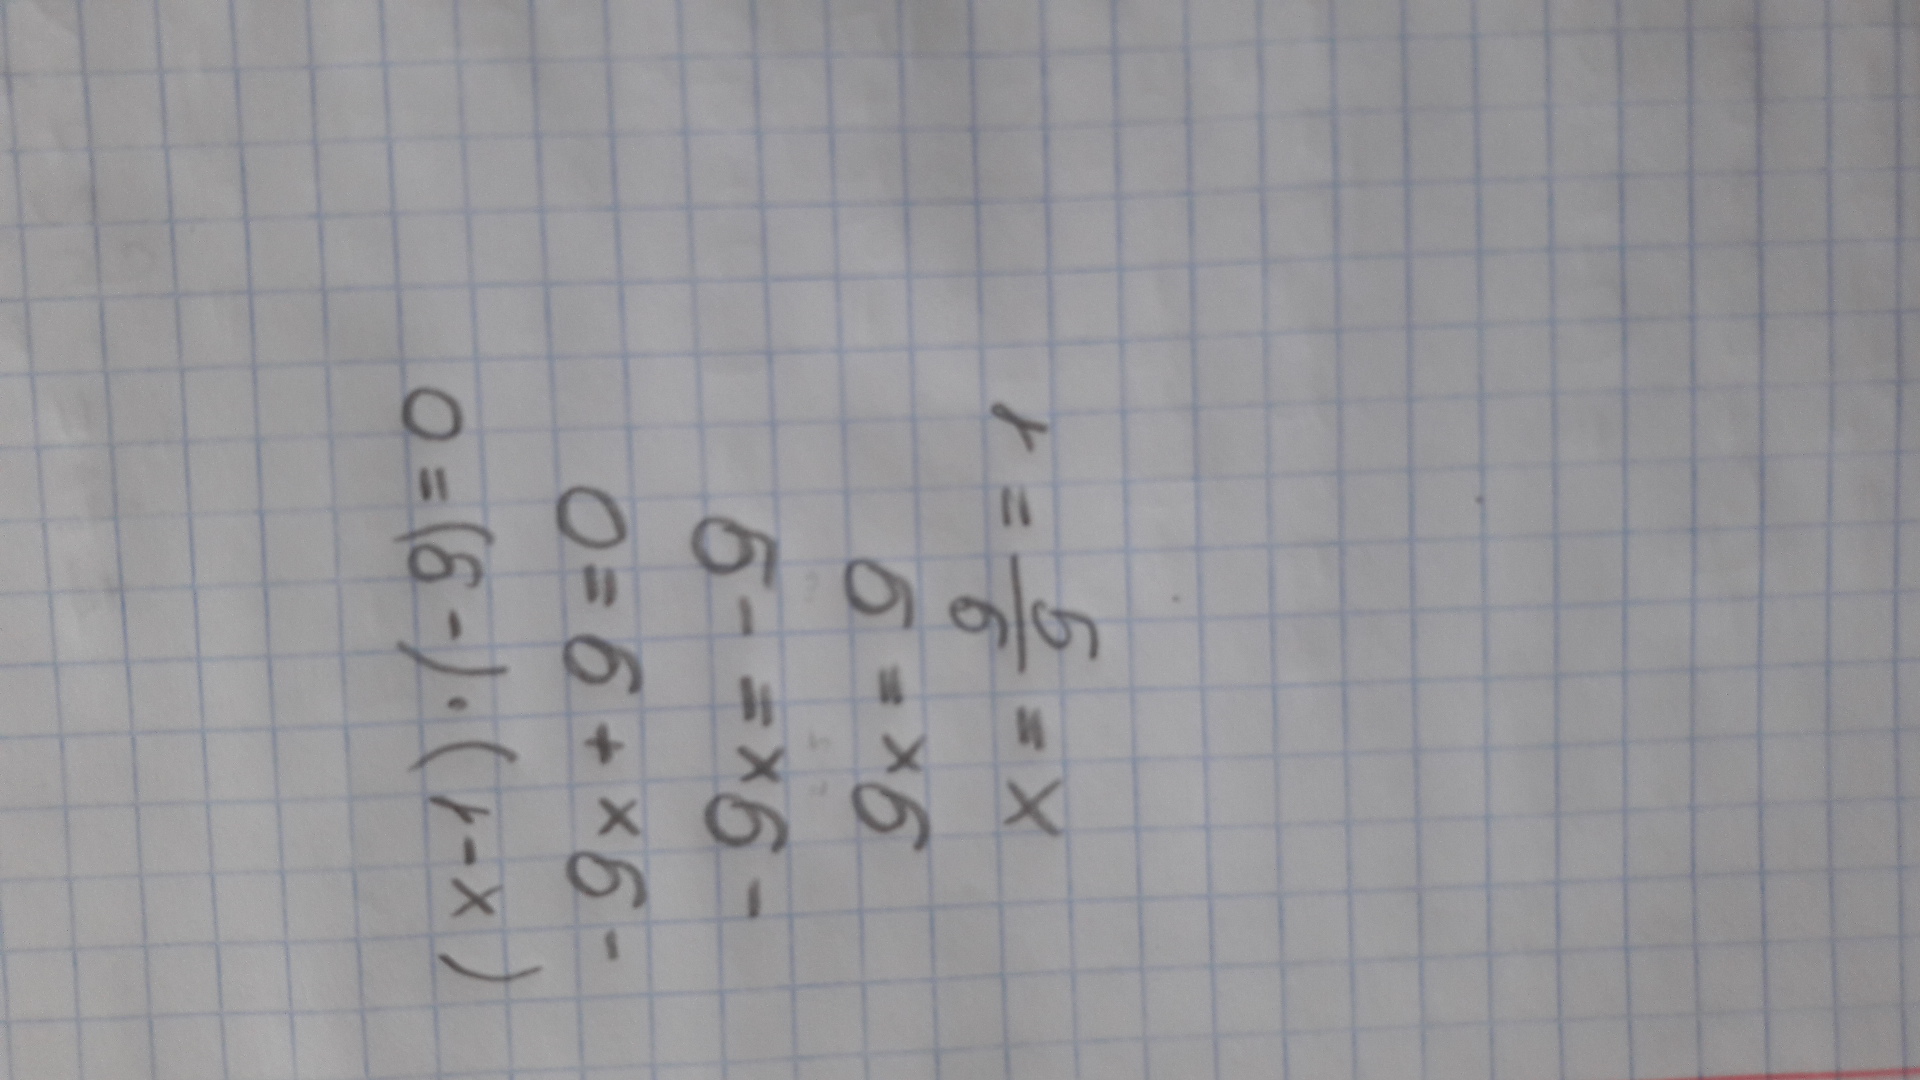 (x-1)·(-9)=0
-9x+9=0
-9x=-9
9x=9
x=9/9=1